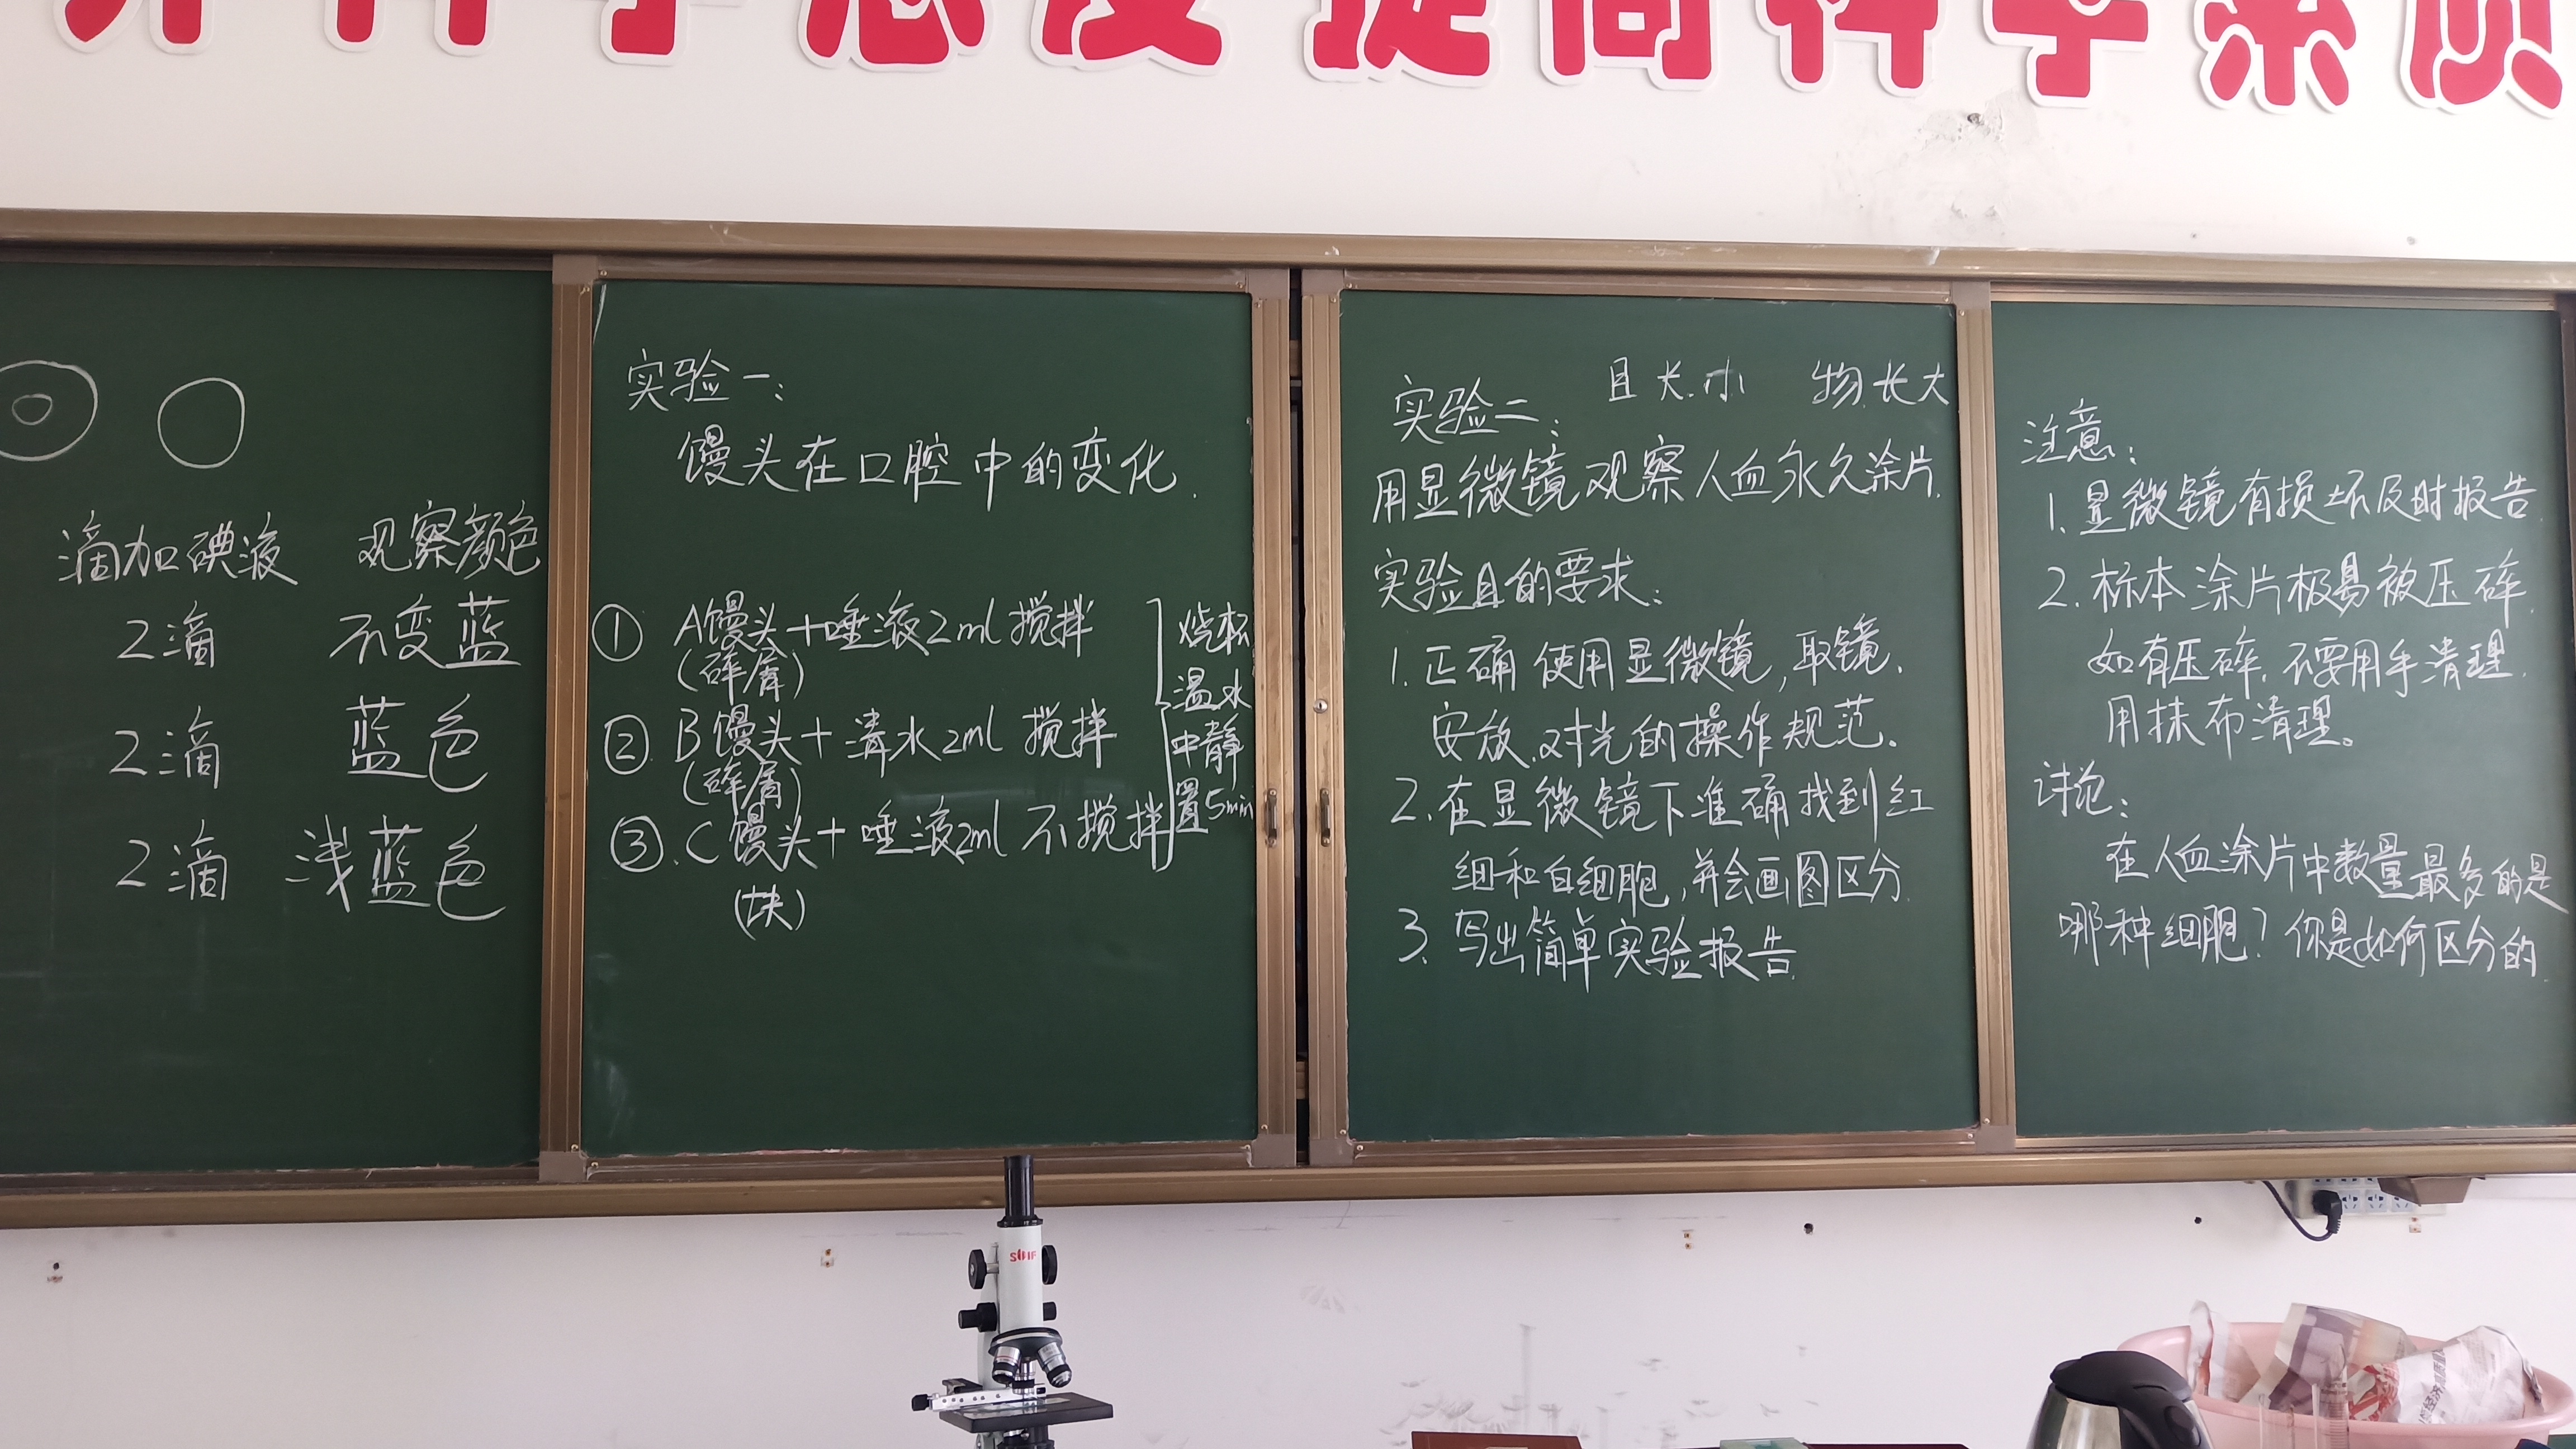 科学态度 提高科学素质
滴加碘液 观察颜色
2滴 不变蓝
2滴 蓝色
2滴 浅蓝色
实验一:
馒头在口腔中的变化.
① A馒头+唾液2ml 搅拌
(碎屑)
② B馒头+清水2ml 搅拌
(碎屑)
③.C馒头+唾液2ml 不搅拌
(块)
烧杯
温水
中静
置5min
目长.小 物.长大
实验二:
用显微镜观察人血永久涂片.
实验目的要求:
1.正确使用显微镜,取镜.
安放.对光的操作规范.
2.在显微镜下准确找到红
细和白细胞,并会画图区分.
3.写出简单实验报告.
注意:
1.显微镜有损坏及时报告.
2.标本涂片极易被压碎.
如有压碎.不要用手清理.
用抹布清理。
讨论:
在人血涂片中数量最多的是
哪种细胞?你是如何区分的.